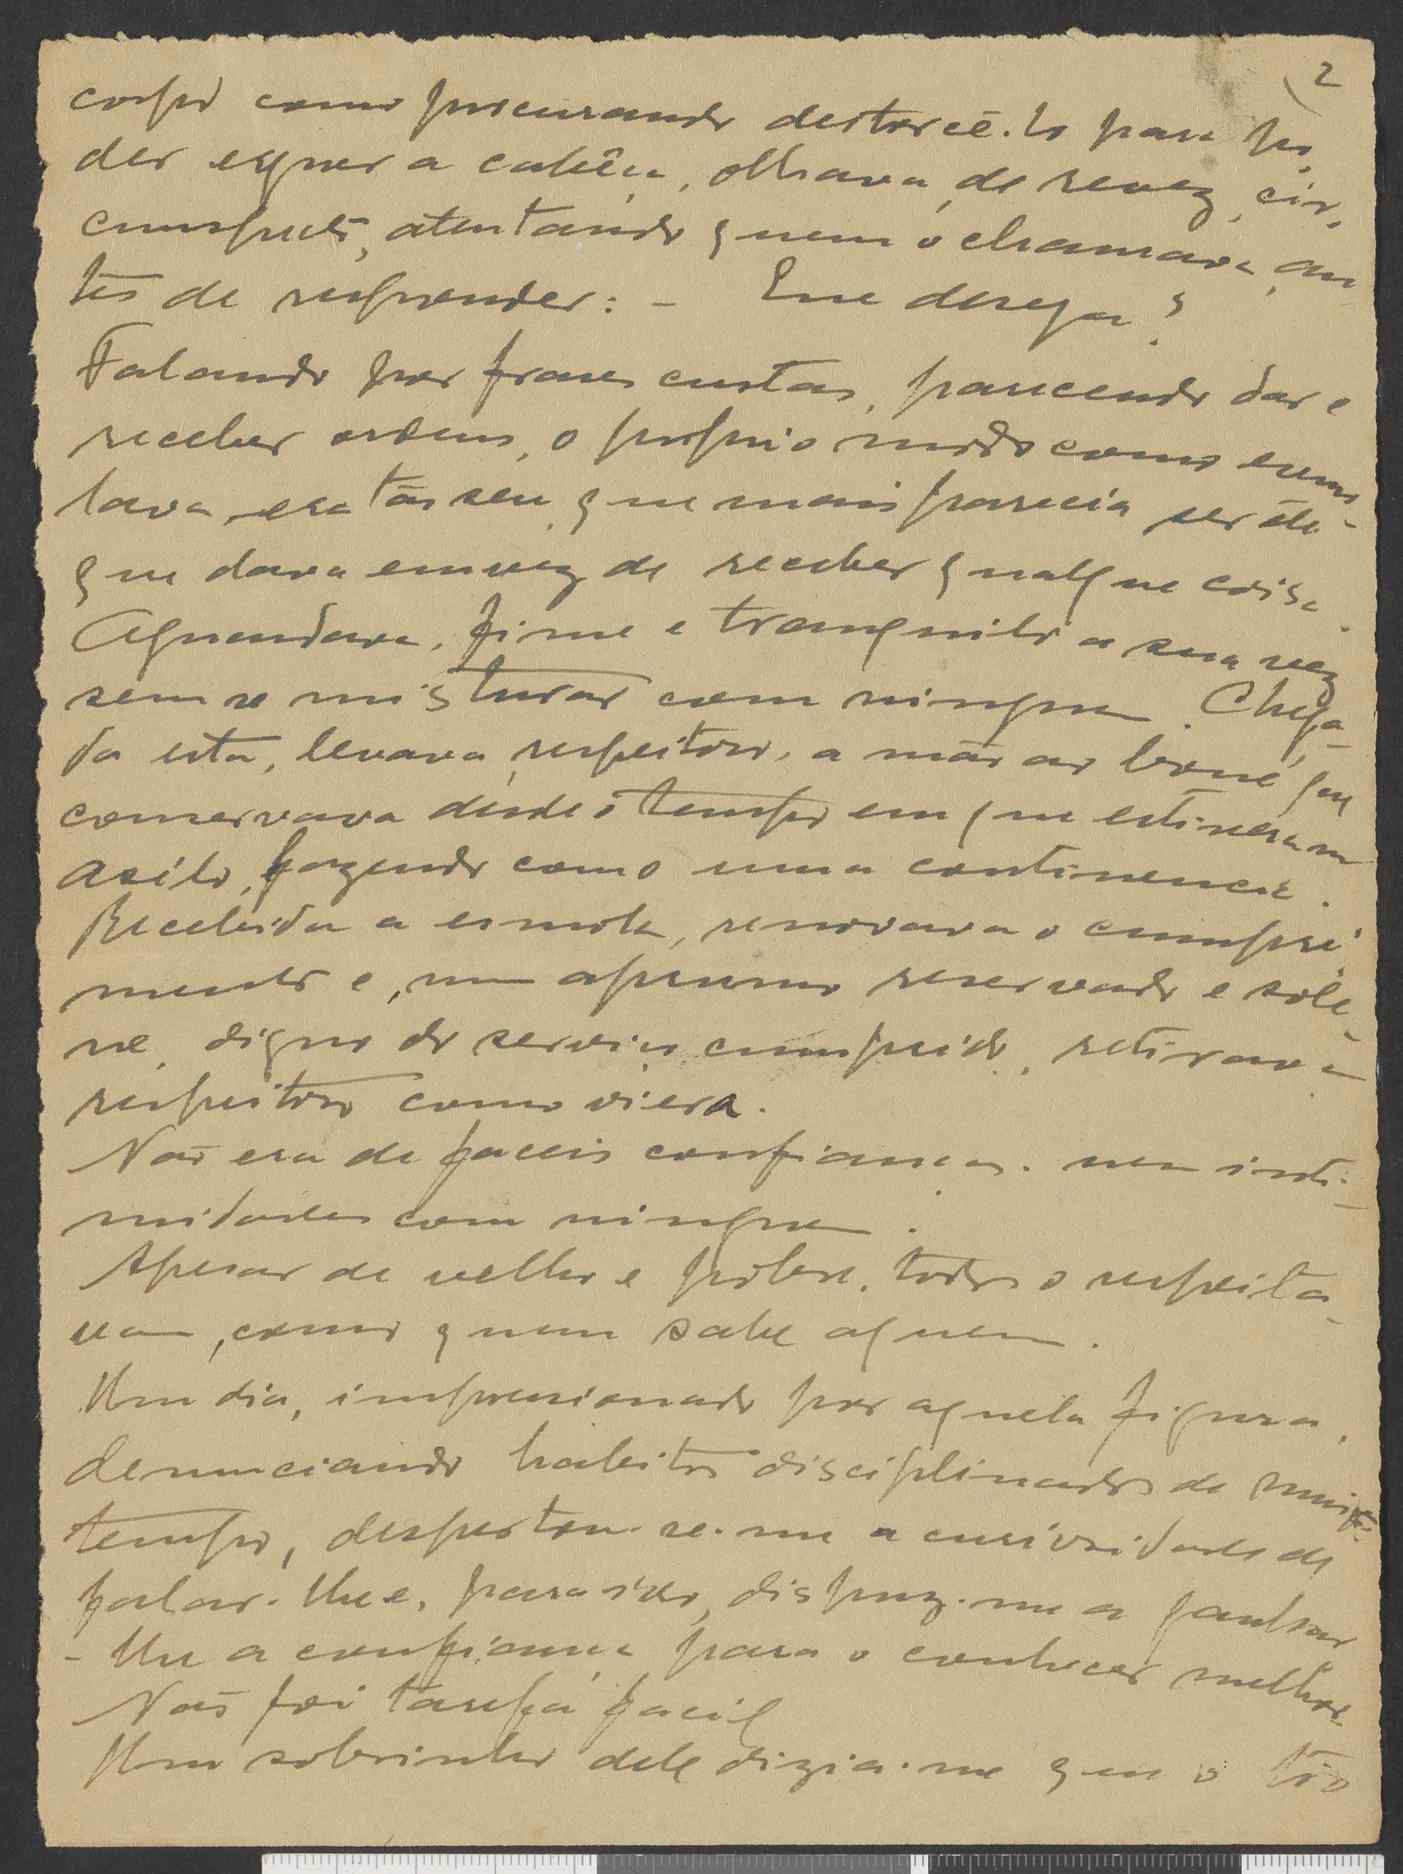 2
corpo como procurando destorcê-lo para po
der erguer a cabêça, olhava, de revez, cir,
cunspecto, atentando quem o chamava, an
tes de responder: - Que deseja?
Falando por frases curtas, parecendo dar e
receber ordens, o proprio modo como esmo-
lava era tão seu que mais parecia ser êle
que dava em vez de receber qualque coisa.
Aguardava, firme e tranquilo a sua vez
sem se misturar com ninguem. Chega-
da esta, levava, respeitoso, a mão ao boné, que
conservava desde o tempo em que estivera no
asilo, fazendo como uma continencia.
Recebida a esmola, renovava o cumpri
mento e, num aprumo reservado e sole-
ne, digno do serviço cumprido, retirava
respeitoso como viera.
Não era de faceis confianças. nem inti-
midades com ninguem.
Apesar de velho e pobre, todos o respeita-
vam, como quem sabe aquem.
Um dia, impressionado por aquela figura,
denunciando habitos disciplinados de muito
tempo, despertou-se-me a curiosidade de
falar-lhe e, para isso, dispuz-me a ganhar
-lhe a confiança para o conhecer melhor.
Não foi tarefa facil
Um sobrinho dele dizia-me que o tio